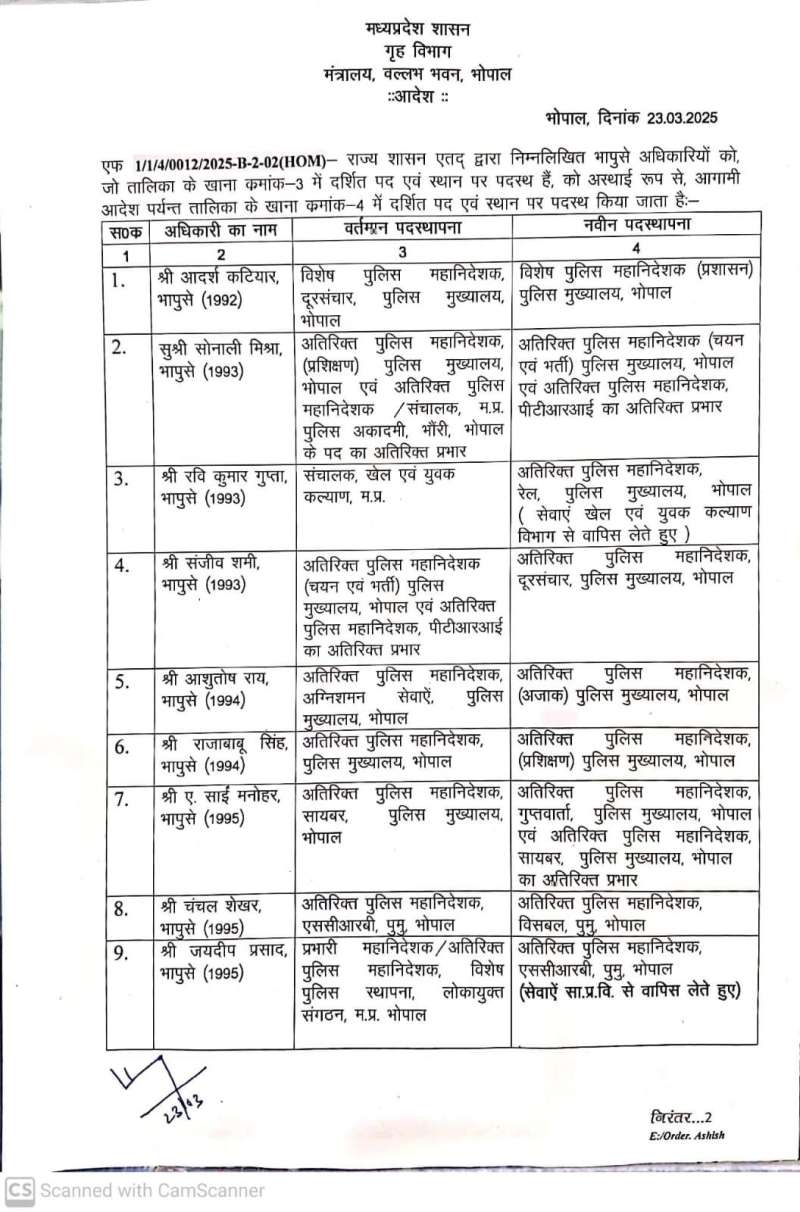 मध्यप्रदेश शासन
गृह विभाग
मंत्रालय, वल्लभ भवन, भोपाल
::आदेश ::
भोपाल, दिनांक 23.03.2025
एफ 1/1/4/0012/2025-B-2-02(HOM)– राज्य शासन एतद् द्वारा निम्नलिखित भापुसे अधिकारियों को,
जो तालिका के खाना कमांक–3 में दर्शित पद एवं स्थान पर पदस्थ हैं, को अस्थाई रूप से, आगामी
आदेश पर्यन्त तालिका के खाना कमांक–4 में दर्शित पद एवं स्थान पर पदस्थ किया जाता हैः–
स0क अधिकारी का नाम वर्तमान पदस्थापना नवीन पदस्थापना
1 2 3 4
1. श्री आदर्श कटियार, विशेष पुलिस महानिदेशक, विशेष पुलिस महानिदेशक (प्रशासन)
भापुसे (1992) दूरसंचार, पुलिस मुख्यालय, पुलिस मुख्यालय, भोपाल
भोपाल
2. सुश्री सोनाली मिश्रा, अतिरिक्त पुलिस महानिदेशक, अतिरिक्त पुलिस महानिदेशक (चयन
भापुसे (1993) (प्रशिक्षण) पुलिस मुख्यालय, एवं भर्ती) पुलिस मुख्यालय, भोपाल
भोपाल एवं अतिरिक्त पुलिस एवं अतिरिक्त पुलिस महानिदेशक,
महानिदेशक /संचालक, म.प्र. पीटीआरआई का अतिरिक्त प्रभार
पुलिस अकादमी, भौंरी, भोपाल
के पद का अतिरिक्त प्रभार
3. श्री रवि कुमार गुप्ता, संचालक, खेल एवं युवक अतिरिक्त पुलिस महानिदेशक,
भापुसे (1993) कल्याण, म.प्र. रेल, पुलिस मुख्यालय, भोपाल
( सेवाएं खेल एवं युवक कल्याण
विभाग से वापिस लेते हुए )
4. श्री संजीव शमी, अतिरिक्त पुलिस महानिदेशक अतिरिक्त पुलिस महानिदेशक,
भापुसे (1993) (चयन एवं भर्ती) पुलिस दूरसंचार, पुलिस मुख्यालय, भोपाल
मुख्यालय, भोपाल एवं अतिरिक्त
पुलिस महानिदेशक, पीटीआरआई
का अतिरिक्त प्रभार
5. श्री आशुतोष राय, अतिरिक्त पुलिस महानिदेशक, अतिरिक्त पुलिस महानिदेशक,
भापुसे (1994) अग्निशमन सेवाऐं, पुलिस (अजाक) पुलिस मुख्यालय, भोपाल
मुख्यालय, भोपाल
6. श्री राजाबाबू सिंह, अतिरिक्त पुलिस महानिदेशक, अतिरिक्त पुलिस महानिदेशक,
भापुसे (1994) पुलिस मुख्यालय, भोपाल (प्रशिक्षण) पुलिस मुख्यालय, भोपाल
7. श्री ए. साई मनोहर, अतिरिक्त पुलिस महानिदेशक, अतिरिक्त पुलिस महानिदेशक,
भापुसे (1995) सायबर, पुलिस मुख्यालय, गुप्तवार्ता, पुलिस मुख्यालय, भोपाल
भोपाल एवं अतिरिक्त पुलिस महानिदेशक,
सायबर, पुलिस मुख्यालय, भोपाल
का अतिरिक्त प्रभार
8. श्री चंचल शेखर, अतिरिक्त पुलिस महानिदेशक, अतिरिक्त पुलिस महानिदेशक,
भापुसे (1995) एससीआरबी, पुमु, भोपाल विसबल, पुमु, भोपाल
9. श्री जयदीप प्रसाद, प्रभारी महानिदेशक/अतिरिक्त अतिरिक्त पुलिस महानिदेशक,
भापुसे (1995) पुलिस महानिदेशक, विशेष एससीआरबी, पुमु, भोपाल
पुलिस स्थापना, लोकायुक्त (सेवाऐं सा.प्र.वि. से वापिस लेते हुए)
संगठन, म.प्र. भोपाल
23/03
निरंतर...2
E:/Order. Ashish
CS Scanned with CamScanner